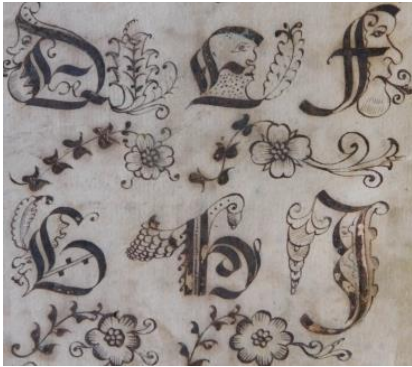 D E f
G H J